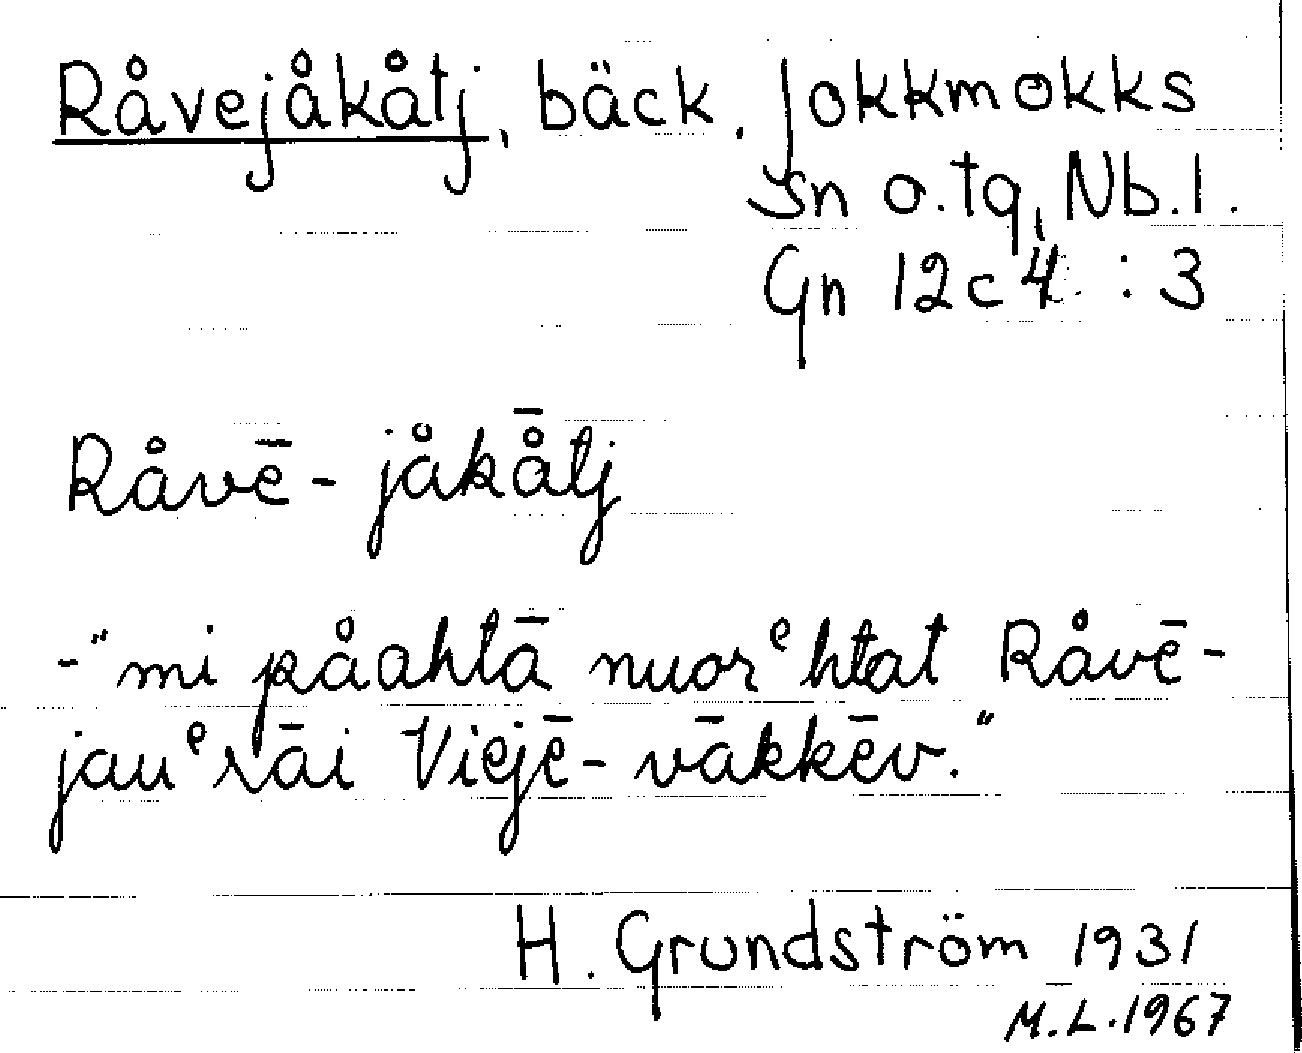 Råvejåkåtj, bäck. Jokkmokks
sn o. tg, Nb. l.
Gn 12c4 : 3
Råvē - jåkå̄tj
- "mi påahtā nuorᵉhtat Råvē-
jauᵉrāi Viejē- vākkēv."
H. Grundström 1931
M.L. 1967